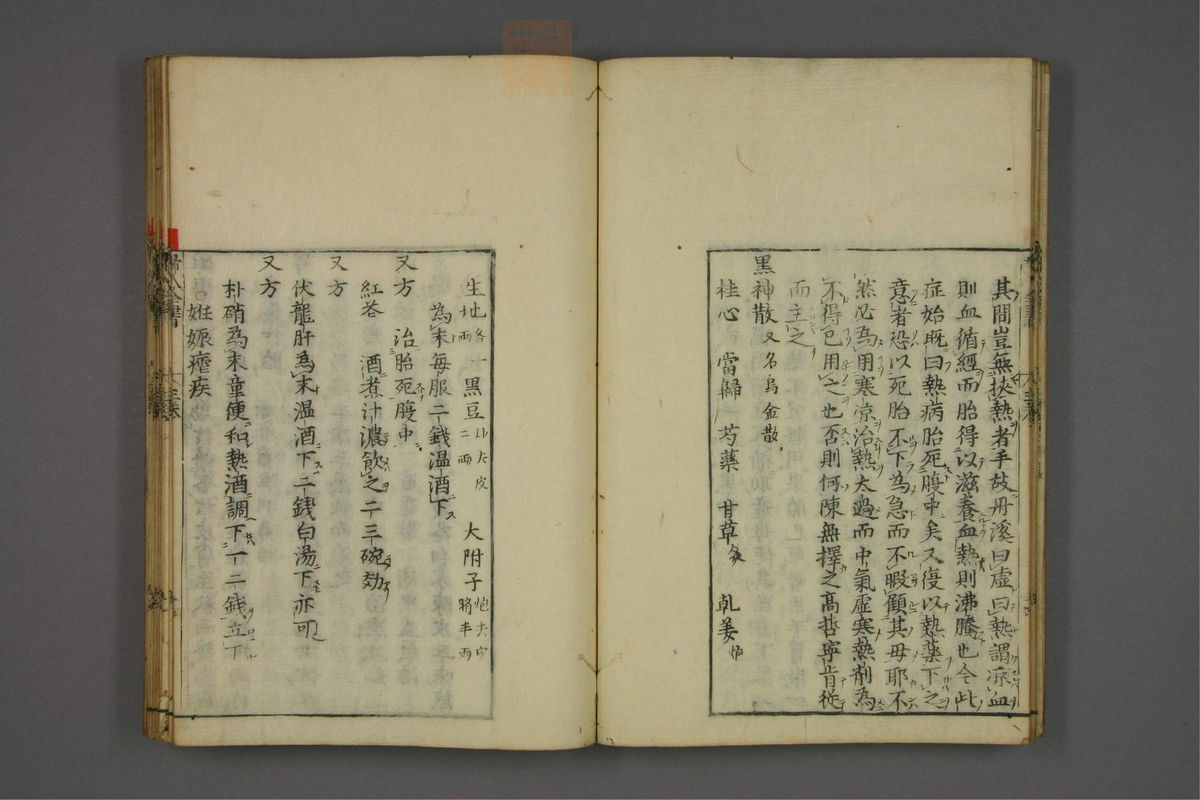 其間豈無挾熱者乎故丹溪曰虛曰熱謂凉血
則血循經而胎得以滋養血熱則沸騰也今此
症始既曰熱病胎死腹中矣又復以熱藥下之
意者恐以死胎不下為急而不暇顧其母耶不
然必為用寒凉治熱太過而中氣虛寒熱劑為
不得已用之也否則何陳無擇之高哲寧肯從
而主之
黒神散又名烏金散
桂心 當歸 芍藥 甘草炙 乹姜炮
生地各一两 黒豆二两炒去皮 大附子炮去皮臍半两
為末每服二錢温酒下
又方 治胎死腹中
紅花 酒煮汁濃飲之二三碗効
又方
伏龍肝為末温酒下二錢白湯下亦可
又方
朴硝為末童便和熱酒調下一二錢立下
○姙娠瘧疾